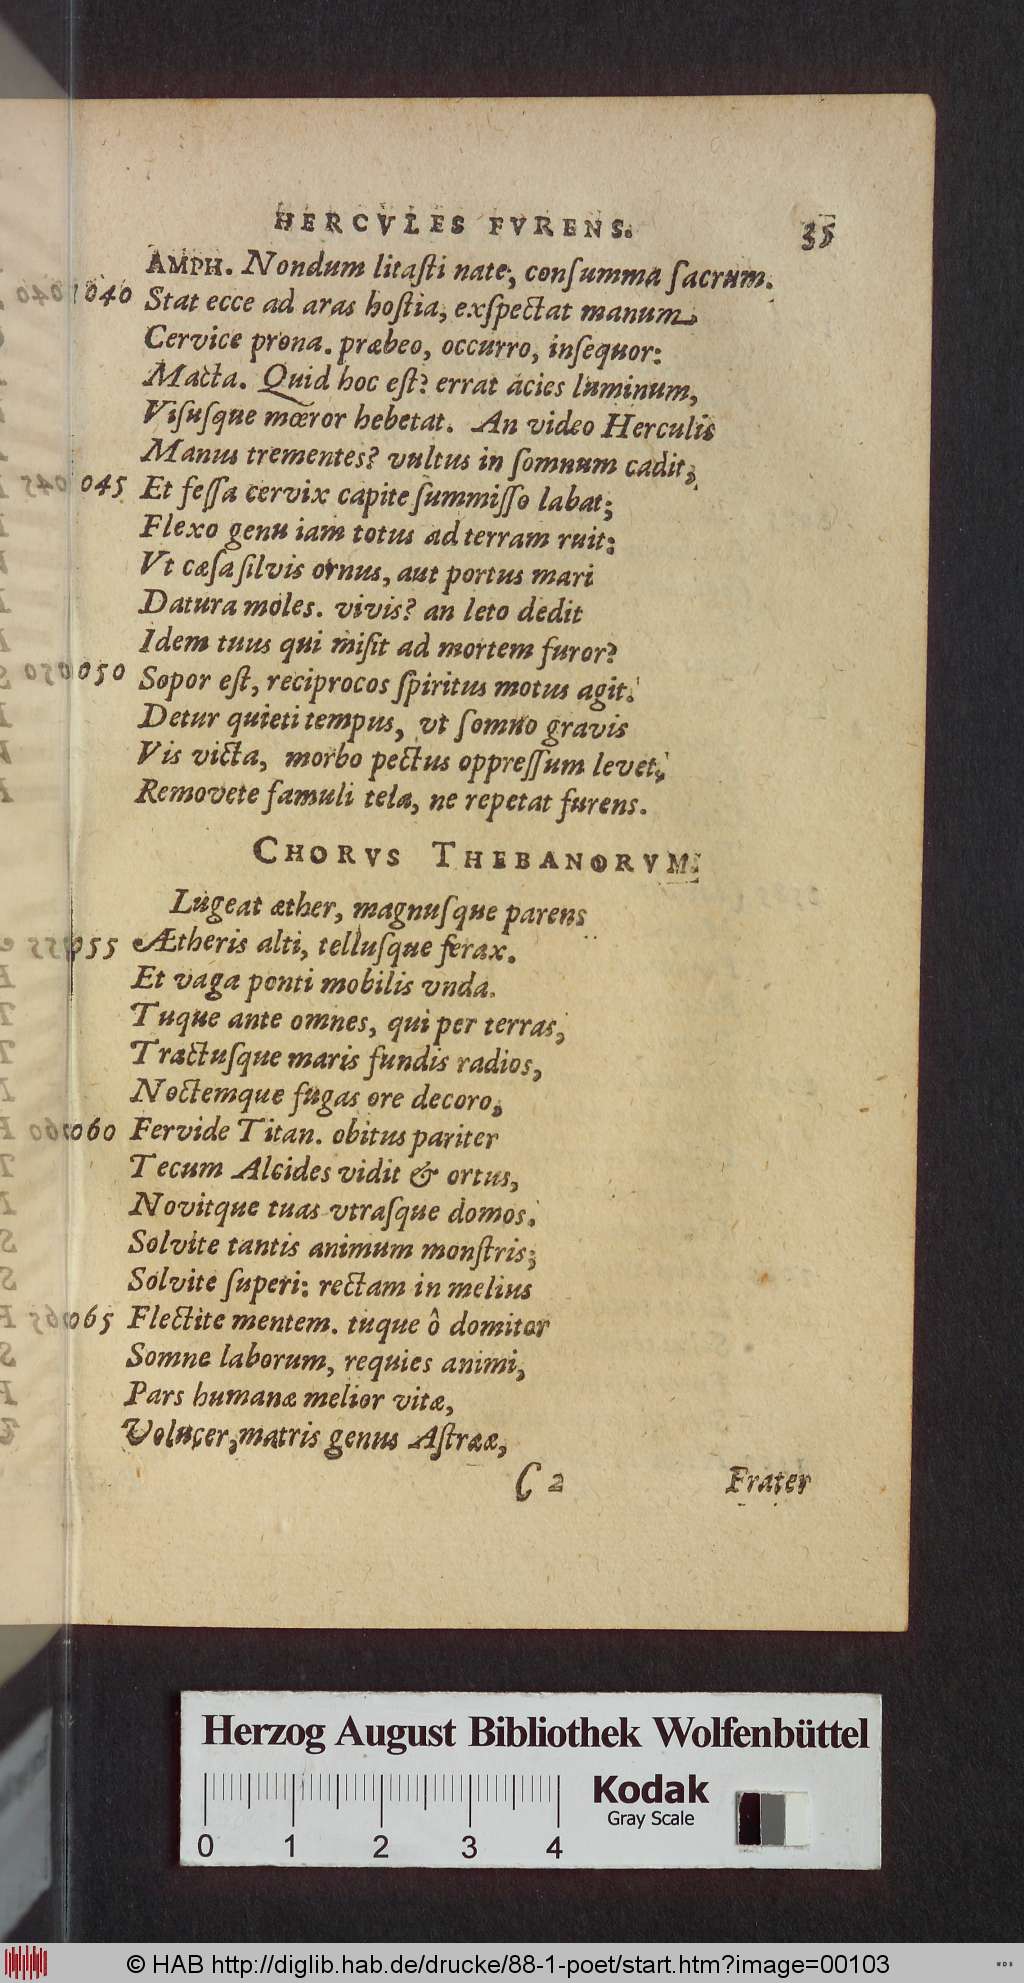 HERCVLES FVRENS. 35
AMPH. Nondum litaſti nate, conſumma ſacrum.
1040 Stat ecce ad aras hoſtia, exſpectat manum
Cervice prona. præbeo, occurro, inſequor:
Macta. Quid hoc eſt? errat acies luminum,
Viſuſque mœror hebetat. An video Herculis
Manus trementes? vultus in ſomnum cadit,
045 Et feſſa cervix capite ſummiſſo labat;
Flexo genu iam totus ad terram ruit:
Vt cæſa ſilvis ornus, aut portus mari
Datura moles. vivis? an leto dedit
Idem tuus qui miſit ad mortem furor?
050 Sopor eſt, reciprocos ſpiritus motus agit.
Detur quieti tempus, vt ſomno gravis
Vis victa, morbo pectus oppreſſum levet.
Removete famuli tela, ne repetat furens.
CHORVS THEBANORVM.
Lugeat æther, magnuſque parens
055 Ætheris alti, telluſque ferax.
Et vaga ponti mobilis vnda.
Tuque ante omnes, qui per terras,
Tractuſque maris fundis radios,
Noctemque fugas ore decoro,
060 Fervide Titan. obitus pariter
Tecum Alcides vidit & ortus,
Novitque tuas vtraſque domos.
Solvite tantis animum monſtris;
Solvite ſuperi: rectam in melius
065 Flectite mentem. tuque ô domitor
Somne laborum, requies animi,
Pars humanæ melior vitæ,
Volucer, matris genus Aſtrææ,
C 2 Frater
Herzog August Bibliothek Wolfenbüttel
Kodak
Gray Scale
0 1 2 3 4
© HAB http://diglib.hab.de/drucke/88-1-poet/start.htm?image=00103